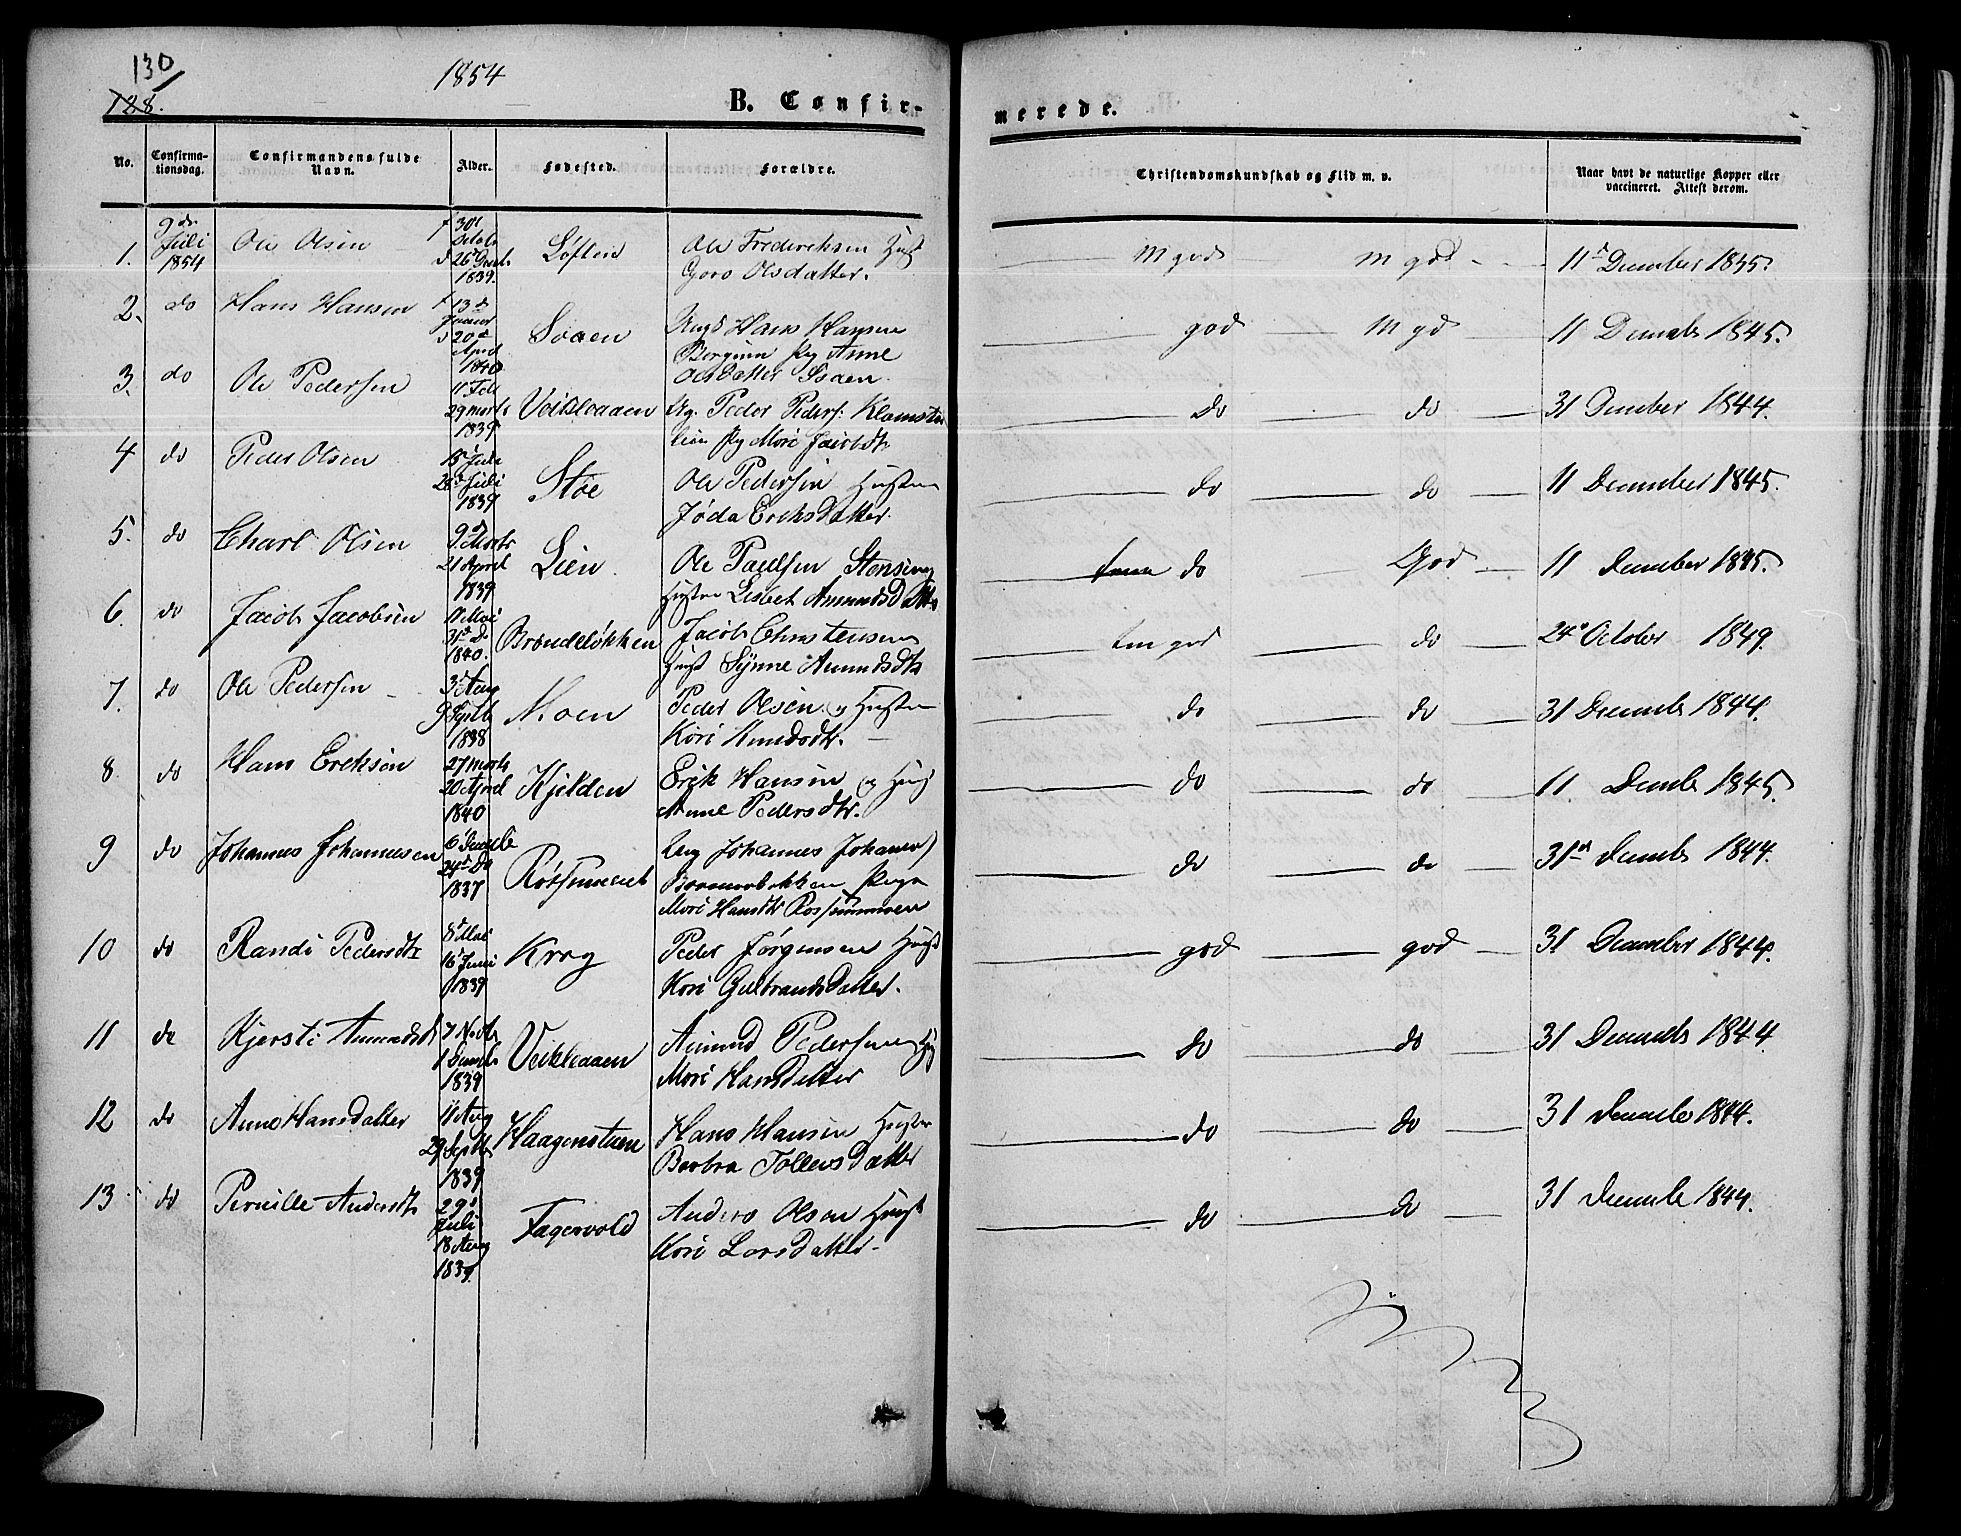 130
128.
1854
B. Confir-
merede.
No.
Confirma-
tionsdag.
Confirmandens fulde
Navn.
Alder.
Fødested.
Forældre.
Christendomskundskab og Flid m. v.
Naar havt de naturlige Kopper eller
vaccineret. Attest derom.
1. 9de Juli 1854 Ole Olsen f 30t d 26 1839. Løftein Ole Frederiksen Goro Olsdatter. M god M god 11
2. do Hans Hansen f 13d d 20d April 1840 Svaen Hans Hansen Anne Olsdatter Svaen god M gd 11 Decembr 1845.
3. do Ole Pedersen 11 Feb 29 Marts 1839 Veikleaaen Peder Peders: Mari do do 31 December 1844.
4 do Peder Olsen 15 26d Juli 1839 Støe Ole Pedersen Hustru Jøda Eriksdatter do do 11 December 1845.
5. do Charl Olsen 9d Marts 21 April 1839 Lien Ole Paulsen Hustru Lisbet Amundsdatter do God 11 December 1845.
6. do Jacob Jacobsen Mai 31d do 1840. Brændeløkken Jacob Christensen Hust Synne Amundsdtr tm god do 24 October 1849.
7. do Ole Pedersen 3d Aug 9 1838 Moen Peder Olsen og Hustru Kari Knudsdtr. do do 31 Decembr 1844.
8 do Hans Eriksen 27 Marts 20 April 1840 Kjelden Erik Hansen og Hust Anne Pedersdtr. do do 11. Decembr 1845.
9 do Johannes Johannesen 6 Decembr 24d do 1837 Johannes Mari Hansdtr do do 31 Decembr 1844.
10 do Randi Pedersdtr 8d Mai 16 Juni 1839 Krog Peder Jørgensen Hust Kari Gulbrandsdatter. god god 31 December 1844.
11 do Kjersti Amundsdt 7 Novbr 1 Decembr 1839 Veikleaaen Amund Pedersen Mari Hansdatter do do 31 Decembr 1844.
12 do Anne Hansdatter 11 Aug 29 Septbr 1839 Haagenstuen Hans Hansen Hustru Barbra Tollevsdatter do do 31 Decembr 1844.
13 do Pernille Andersdtr 29d Juli 18 Aug 1839. Fagervold Anders Olsen Hust Kari Larsdatter do do 31 Decembr 1844.